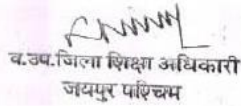 व.उप.जिला शिक्षा अधिकारी
जयपुर पश्चिम